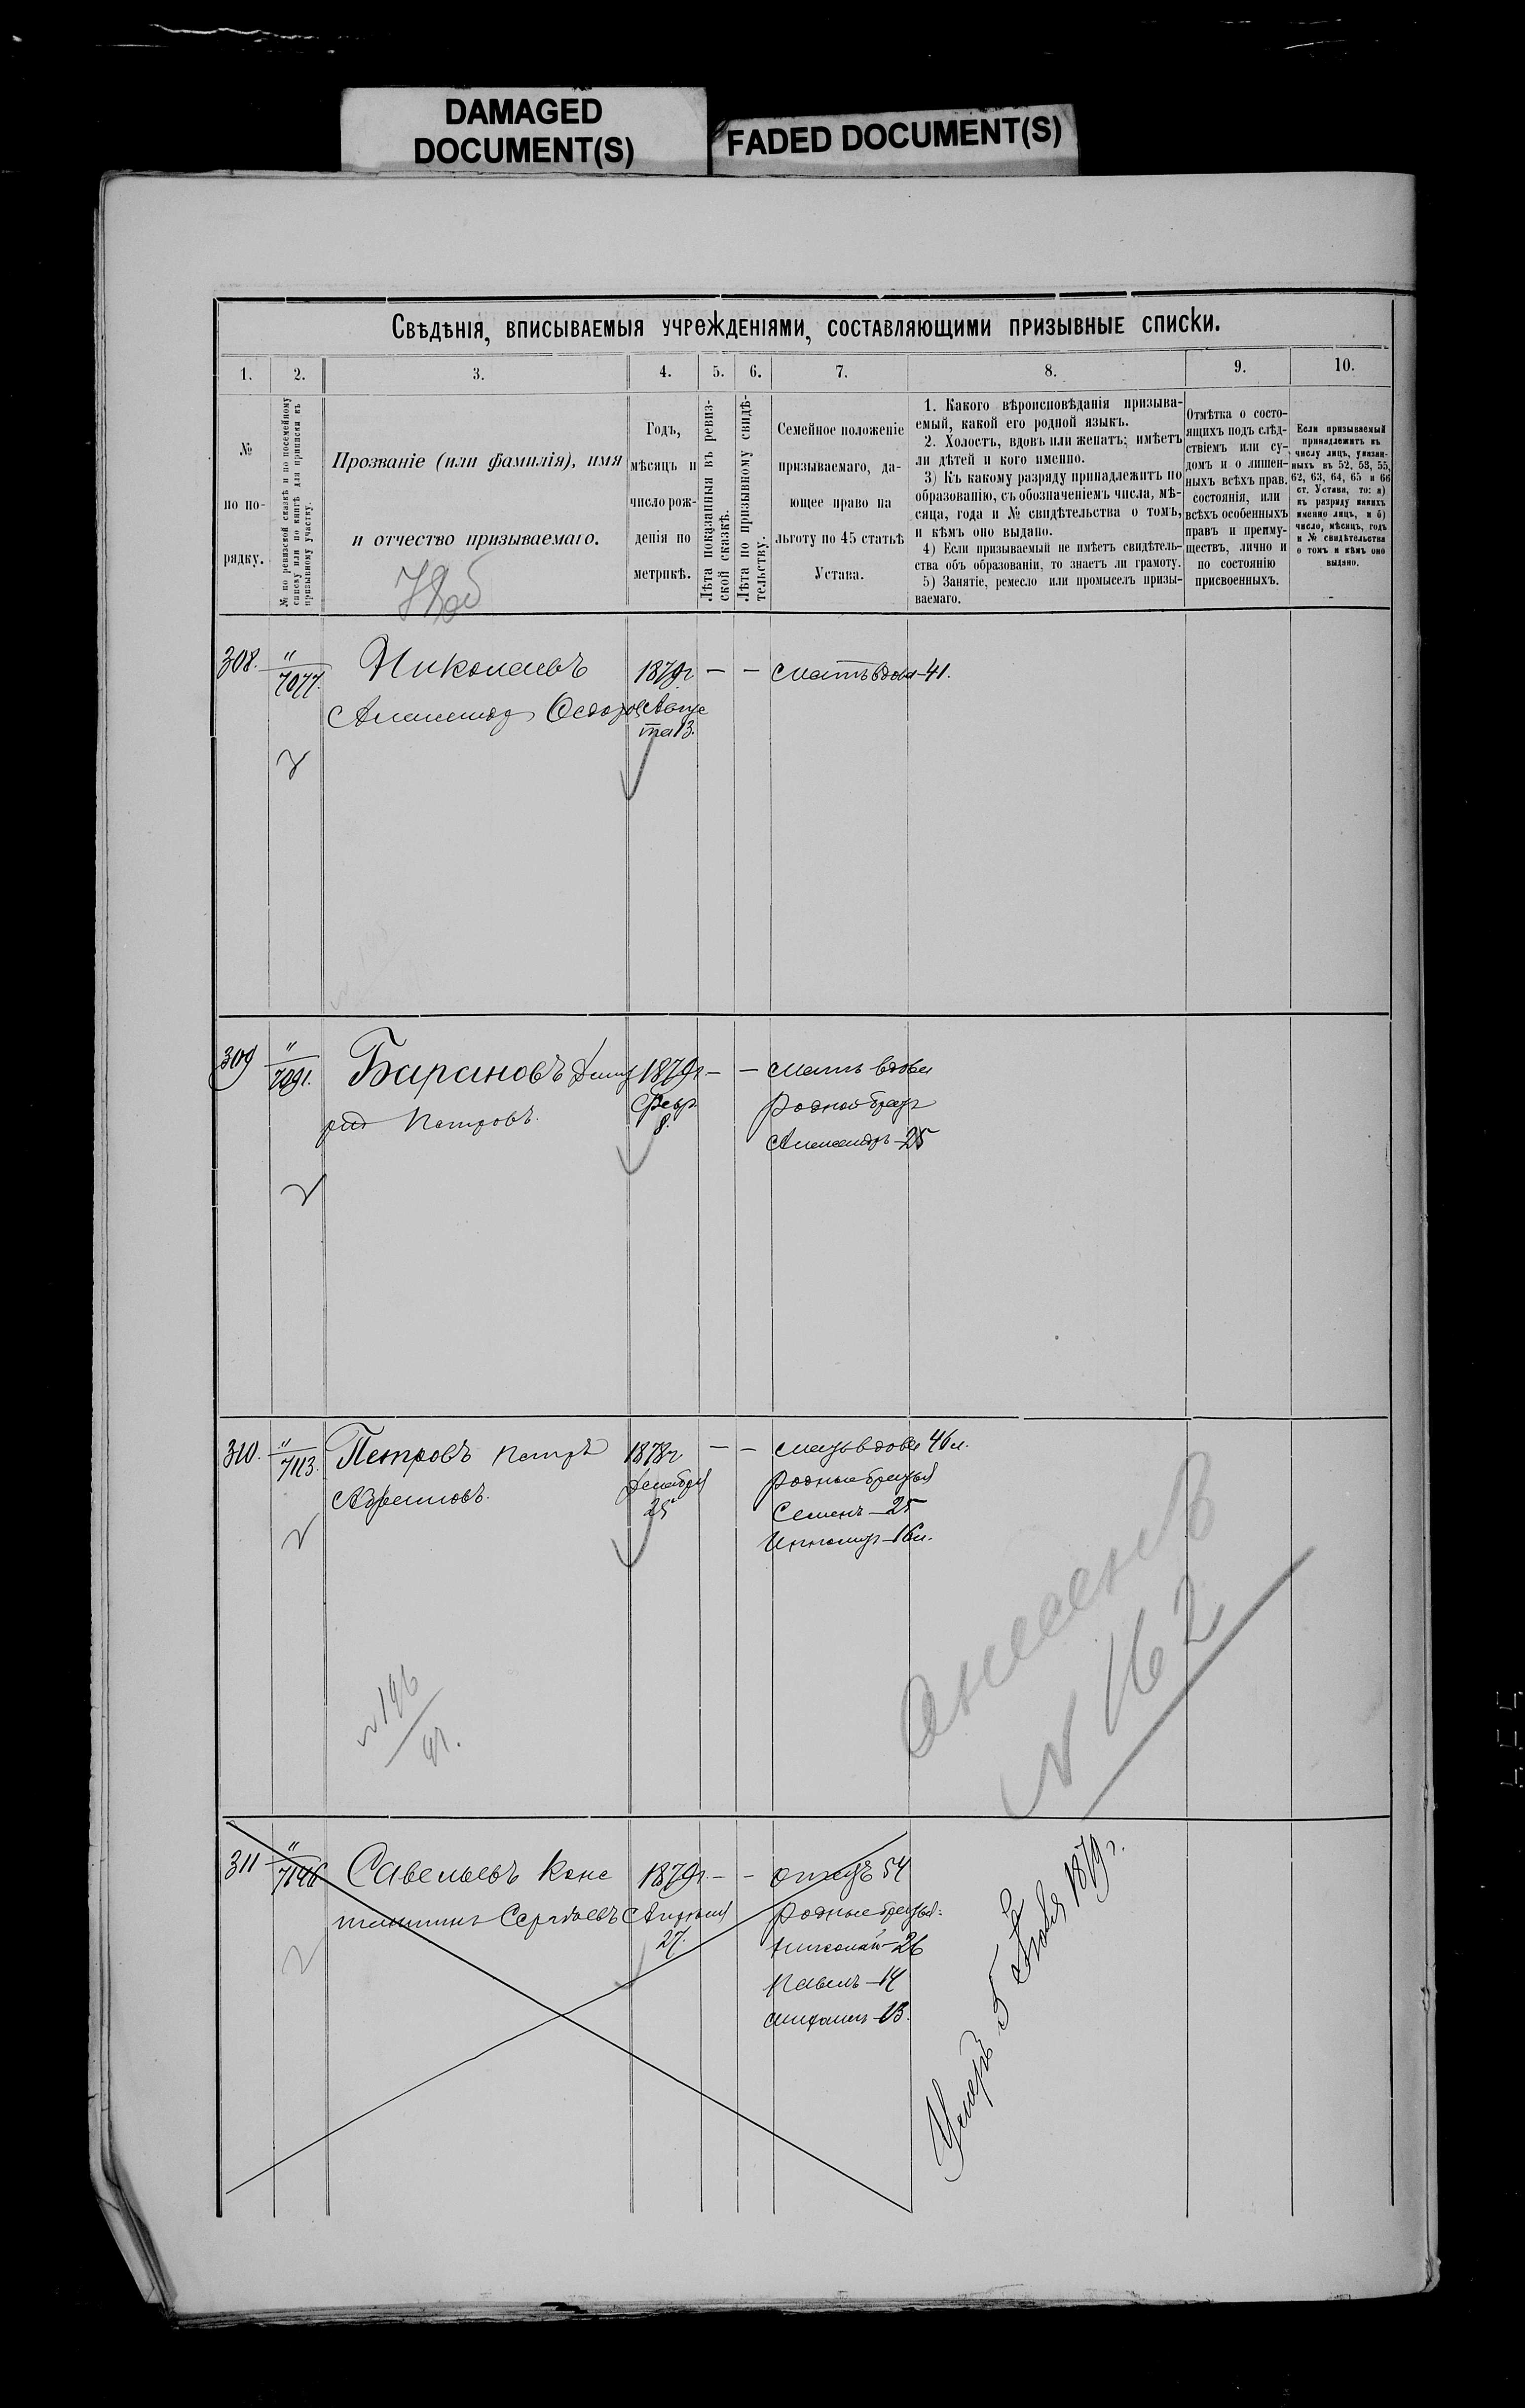 DAMAGED
DOCUMENT(S)
FADED DOCUMENT(S)
Свѣдѣнія, вписываемыя учрежденіями, составляющими призывные списки.
1.
2.
3.
4.
5.
6.
7.
8.
9.
10.
№
по по-
рядку.
№ по ревизской сказкѣ и по посемейному
списку или по книгѣ для приписки къ
призывному участку.
Прозваніе (или фамилія), имя
и отчество призываемаго.
Годъ,
мѣсяцъ и
число рож-
денія по
метрикѣ.
Лѣта показанныя въ ревиз-
ской сказкѣ.
Лѣта по призывному свидѣ-
тельству.
Семейное положеніе
призываемаго, да-
ющее право на
льготу по 45 статьѣ
Устава.
1. Какого вѣроисповѣданія призыва-
емый, какой его родной языкъ.
2. Холостъ, вдовъ или женатъ; имѣетъ
ли дѣтей и кого именно.
3) Къ какому разряду принадлежитъ по
образованію, съ обозначеніемъ числа, мѣ-
сяца, года и № свидѣтельства о томъ,
и кѣмъ оно выдано.
4) Если призываемый не имѣетъ свидѣтель-
ства объ образованіи, то знаетъ ли грамоту.
5) Занятіе, ремесло или промыселъ призы-
ваемаго.
Отмѣтка о состо-
ящихъ подъ слѣд-
ствіемъ или су-
домъ и о лишен-
ныхъ всѣхъ прав.
состоянія, или
всѣхъ особенныхъ
правъ и преиму-
ществъ, лично и
по состоянію
присвоенныхъ.
Если призываемый
принадлежитъ къ
числу лицъ, указан-
ныхъ въ 52, 53, 55,
62, 63, 64, 65 и 66
ст. Устава, то: а)
къ разряду какихъ
именно лицъ, и б)
число, мѣсяцъ, годъ
и № свидѣтельства
о томъ и кѣмъ оно
выдано.
308. " 7077. Николаевъ 1879г — — мать вдова 41.
Александръ Ѳедоровъ Авгус
та 13.
309 " 7091. Барановъ Дмит 1879г — — мать вдова
рій Петровъ. Февр. родной братъ
8. Александръ — 25
310. " 7113. Петровъ Петръ 1878г — — мать вдова 46 л.
Ефремовъ. Декабря родные братья
25 Семенъ — 25
16 л.
№ 196
№ 162
311 " 7146 Савельевъ Конс 1879г. — — отецъ 54
тантинъ Сергѣевъ Апрѣля родные братья:
27. Николай — 26
Павелъ — 14
Михаилъ — 13.
Умеръ 5 1879 г.